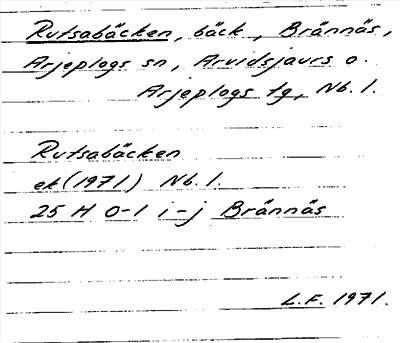 Rutsabäcken, bäck, Brännäs,
Arjeplogs sn, Arvidsjaurs o.
Arjeplogs tg, Nb. l.
Rutsabäcken
ek (1971) Nb. l.
25 H 0-1 i-j Brännäs
L.F. 1971.